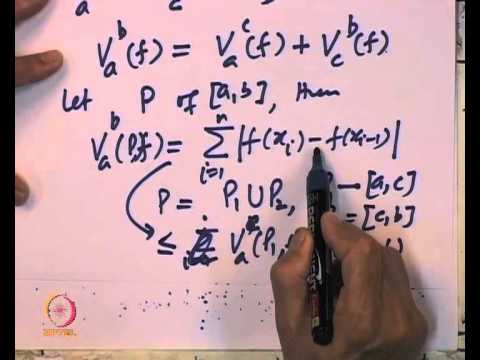 V_a^b(f) = V_a^c(f) + V_c^b(f)
Let P of [a,b], then
V_a^b(P,f) = Σ_{i=1}^n |f(x_i) - f(x_{i-1})|
P = P_1 ∪ P_2, → [a,c]
= [c,b]
≤ V_a^c(P_1,
NPTEL